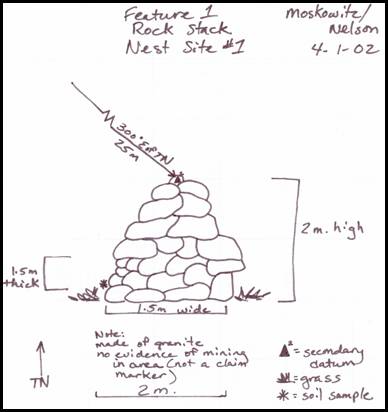 Feature 1
Rock Stack
Nest Site #1
Moskowitz/
Nelson
4-1-02
300° E of TN
25m
2
2m. high
1.5m
thick
1.5m wide
Note:
made of granite
no evidence of mining
in area (not a claim
marker)
2m.
TN
2 = secondary
datum
= grass
* = soil sample